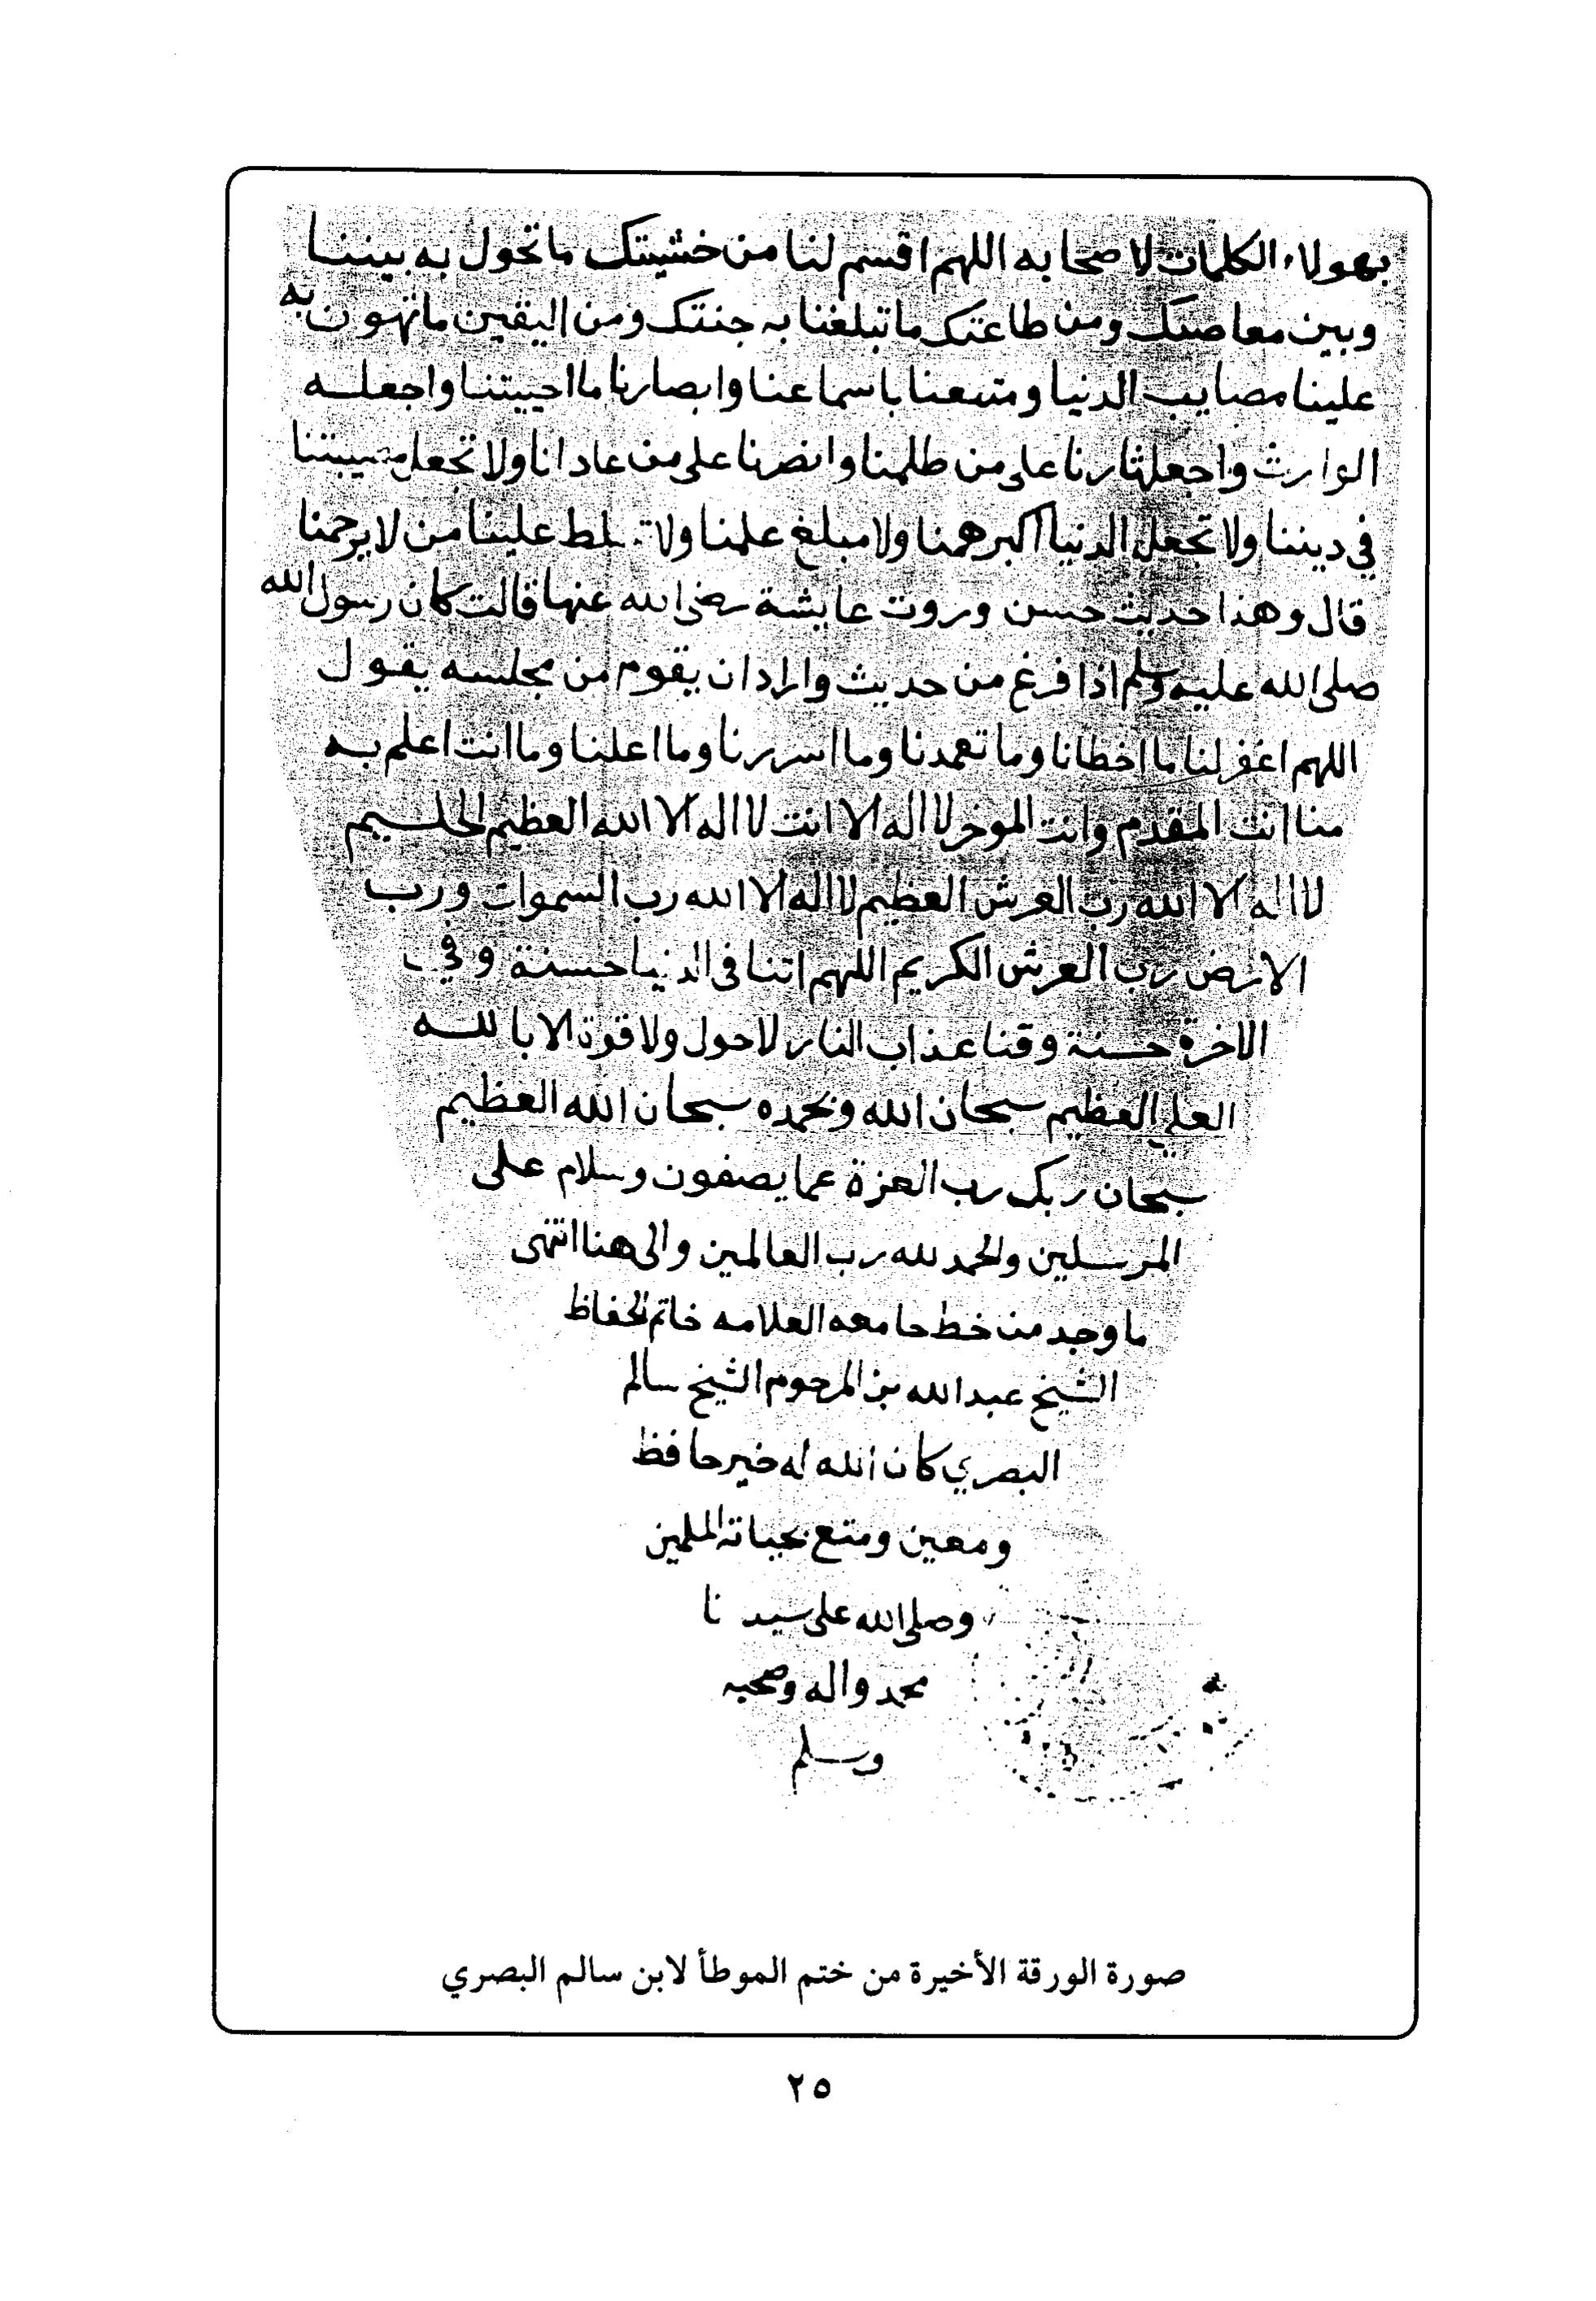 بهولاء الكلمات لاصحابه اللهم اقسم لنا من خشيتك ما تحول به بيننا
وبين معاصيك ومن طاعتك ما تبلغنا به جنتك ومن اليقين ما تهون به
علينا مصايب الدنيا ومتعنا باسماعنا وابصارنا ما احييتنا واجعله
الوارث واجعل ثارنا على من ظلمنا وانصرنا على من عادانا ولا تجعل مصيبتنا
في ديننا ولا تجعل الدنيا اكبر همنا ولا مبلغ علمنا ولا تسلط علينا من لا يرحمنا
قال وهذا حديث حسن وروت عايشة رضي الله عنها قالت كان رسول الله
صلى الله عليه وسلم اذا فرغ من حديث واراد ان يقوم من مجلسه يقول
اللهم اغفر لنا ما اخطانا وما تعمدنا وما اسررنا وما اعلنا وما انت اعلم به
منا انت المقدم وانت الموخر لا اله الا انت لا اله الا الله العظيم الحليم
لا اله الا الله رب العرش العظيم لا اله الا الله رب السموات ورب
الارض رب العرش الكريم اللهم اتنا في الدنيا حسنة وفي
الاخرة حسنة وقنا عذاب النار لا حول ولا قوة الا بالله
العلي العظيم سبحان الله وبحمده سبحان الله العظيم
سبحان ربك رب العزة عما يصفون وسلام على
المرسلين والحمد لله رب العالمين والى هنا انتهى
ما وجد من خط جامعه العلامه خاتم الحفاظ
الشيخ عبدالله بن المرحوم الشيخ سالم
البصري كان الله له خير حافظ
ومعين ومتع بحياته المسلمين
وصلى الله على سيدنا
محمد واله وصحبه
وسلم
صورة الورقة الأخيرة من ختم الموطأ لابن سالم البصري
٢٥